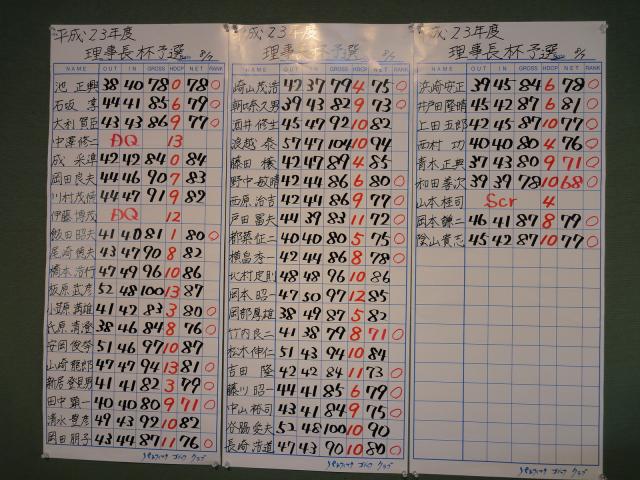 平成23年度
理事長杯予選 8/7
NAME OUT IN GROSS HDCP NET RANK
池 正興 38 40 78 0 78 ○
石坂 享 44 41 85 6 79 ○
大利 賀臣 43 43 86 9 77 ○
中澤 修二 DQ 13
成 采準 42 42 84 0 84
岡田 良夫 44 46 90 7 83
川村 茂候 44 47 91 9 82
伊藤 博茂 DQ 12
飯田 昭夫 41 40 81 1 80 ○
尾崎 侑夫 43 47 90 8 82
橋本 浩行 47 49 96 10 86
板原 武彦 52 48 100 13 87
小笠原 満雄 41 42 83 3 80 ○
氏原 清澄 38 46 84 8 76 ○
安岡 俊榮 51 46 97 10 87
山崎 龍郎 47 47 94 13 81 ○
新居 登見男 41 41 82 3 79 ○
田中 顕一 40 40 80 9 71 ○
清水 豊彦 49 43 92 10 82
岡田 朋子 43 44 87 11 76 ○
パシフィック ゴルフ クラブ
平成23年度
理事長杯予選 8/7
NAME OUT IN GROSS HDCP NET RANK
崎山 茂治 42 37 79 4 75 ○
朝比奈 久男 39 43 82 9 73 ○
酒井 修生 45 47 92 10 82
渡越 泰 57 47 104 10 94
藤田 穣 42 47 89 4 85
野中 敏晴 42 44 86 6 80 ○
西原 治吉 42 44 86 9 77 ○
戸田 富夫 44 39 83 11 72 ○
都築 征二 40 40 80 5 75 ○
横畠 秀一 42 44 86 8 78 ○
北村 定則 48 48 96 10 86
岡本 昭一 47 50 97 12 85
岡部 鳳雄 38 49 87 5 82
竹内 良二 41 38 79 8 71 ○
松木 伸仁 51 43 94 10 84
吉田 隆 42 42 84 11 73 ○
藤川 昭一 44 41 85 6 79 ○
中山 裕司 43 41 84 9 75 ○
谷脇 愛夫 52 48 100 10 90
長崎 浩道 47 43 90 10 80 ○
パシフィック ゴルフ クラブ
平成23年度
理事長杯予選 8/7
NAME OUT IN GROSS HDCP NET RANK
浜崎 安正 39 45 84 6 78 ○
井戸田 隆晴 45 42 87 6 81
上田 五郎 42 45 87 10 77 ○
西村 功 40 40 80 4 76 ○
青木 正典 37 43 80 9 71 ○
和田 善次 39 39 78 10 68 ○
山本 桂司 Scr 4
岡本 鎌二 46 41 87 8 79 ○
陰山 貴志 45 42 87 10 77 ○
パシフィック ゴルフ クラブ